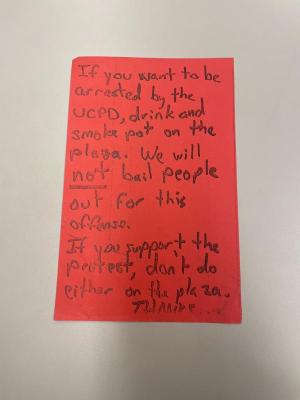 If you want to be
arrested by the
UCPD, drink and
smoke pot on the
plaza. We will
not bail people
out for this
offense.
If you support the
protest, don't do
either on the plaza.